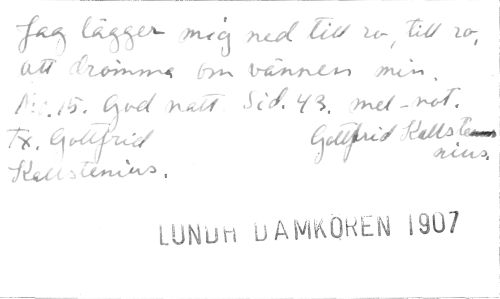 Jag lägger mig ned till ro, till ro,
att drömma om vännen min.
No. 15. God natt. Sid. 43. mel-not.
Tx. Gottfrid
Kallstenius.
Gottfrid Kallste
nius.
LUNDH DAMKÖREN 1907